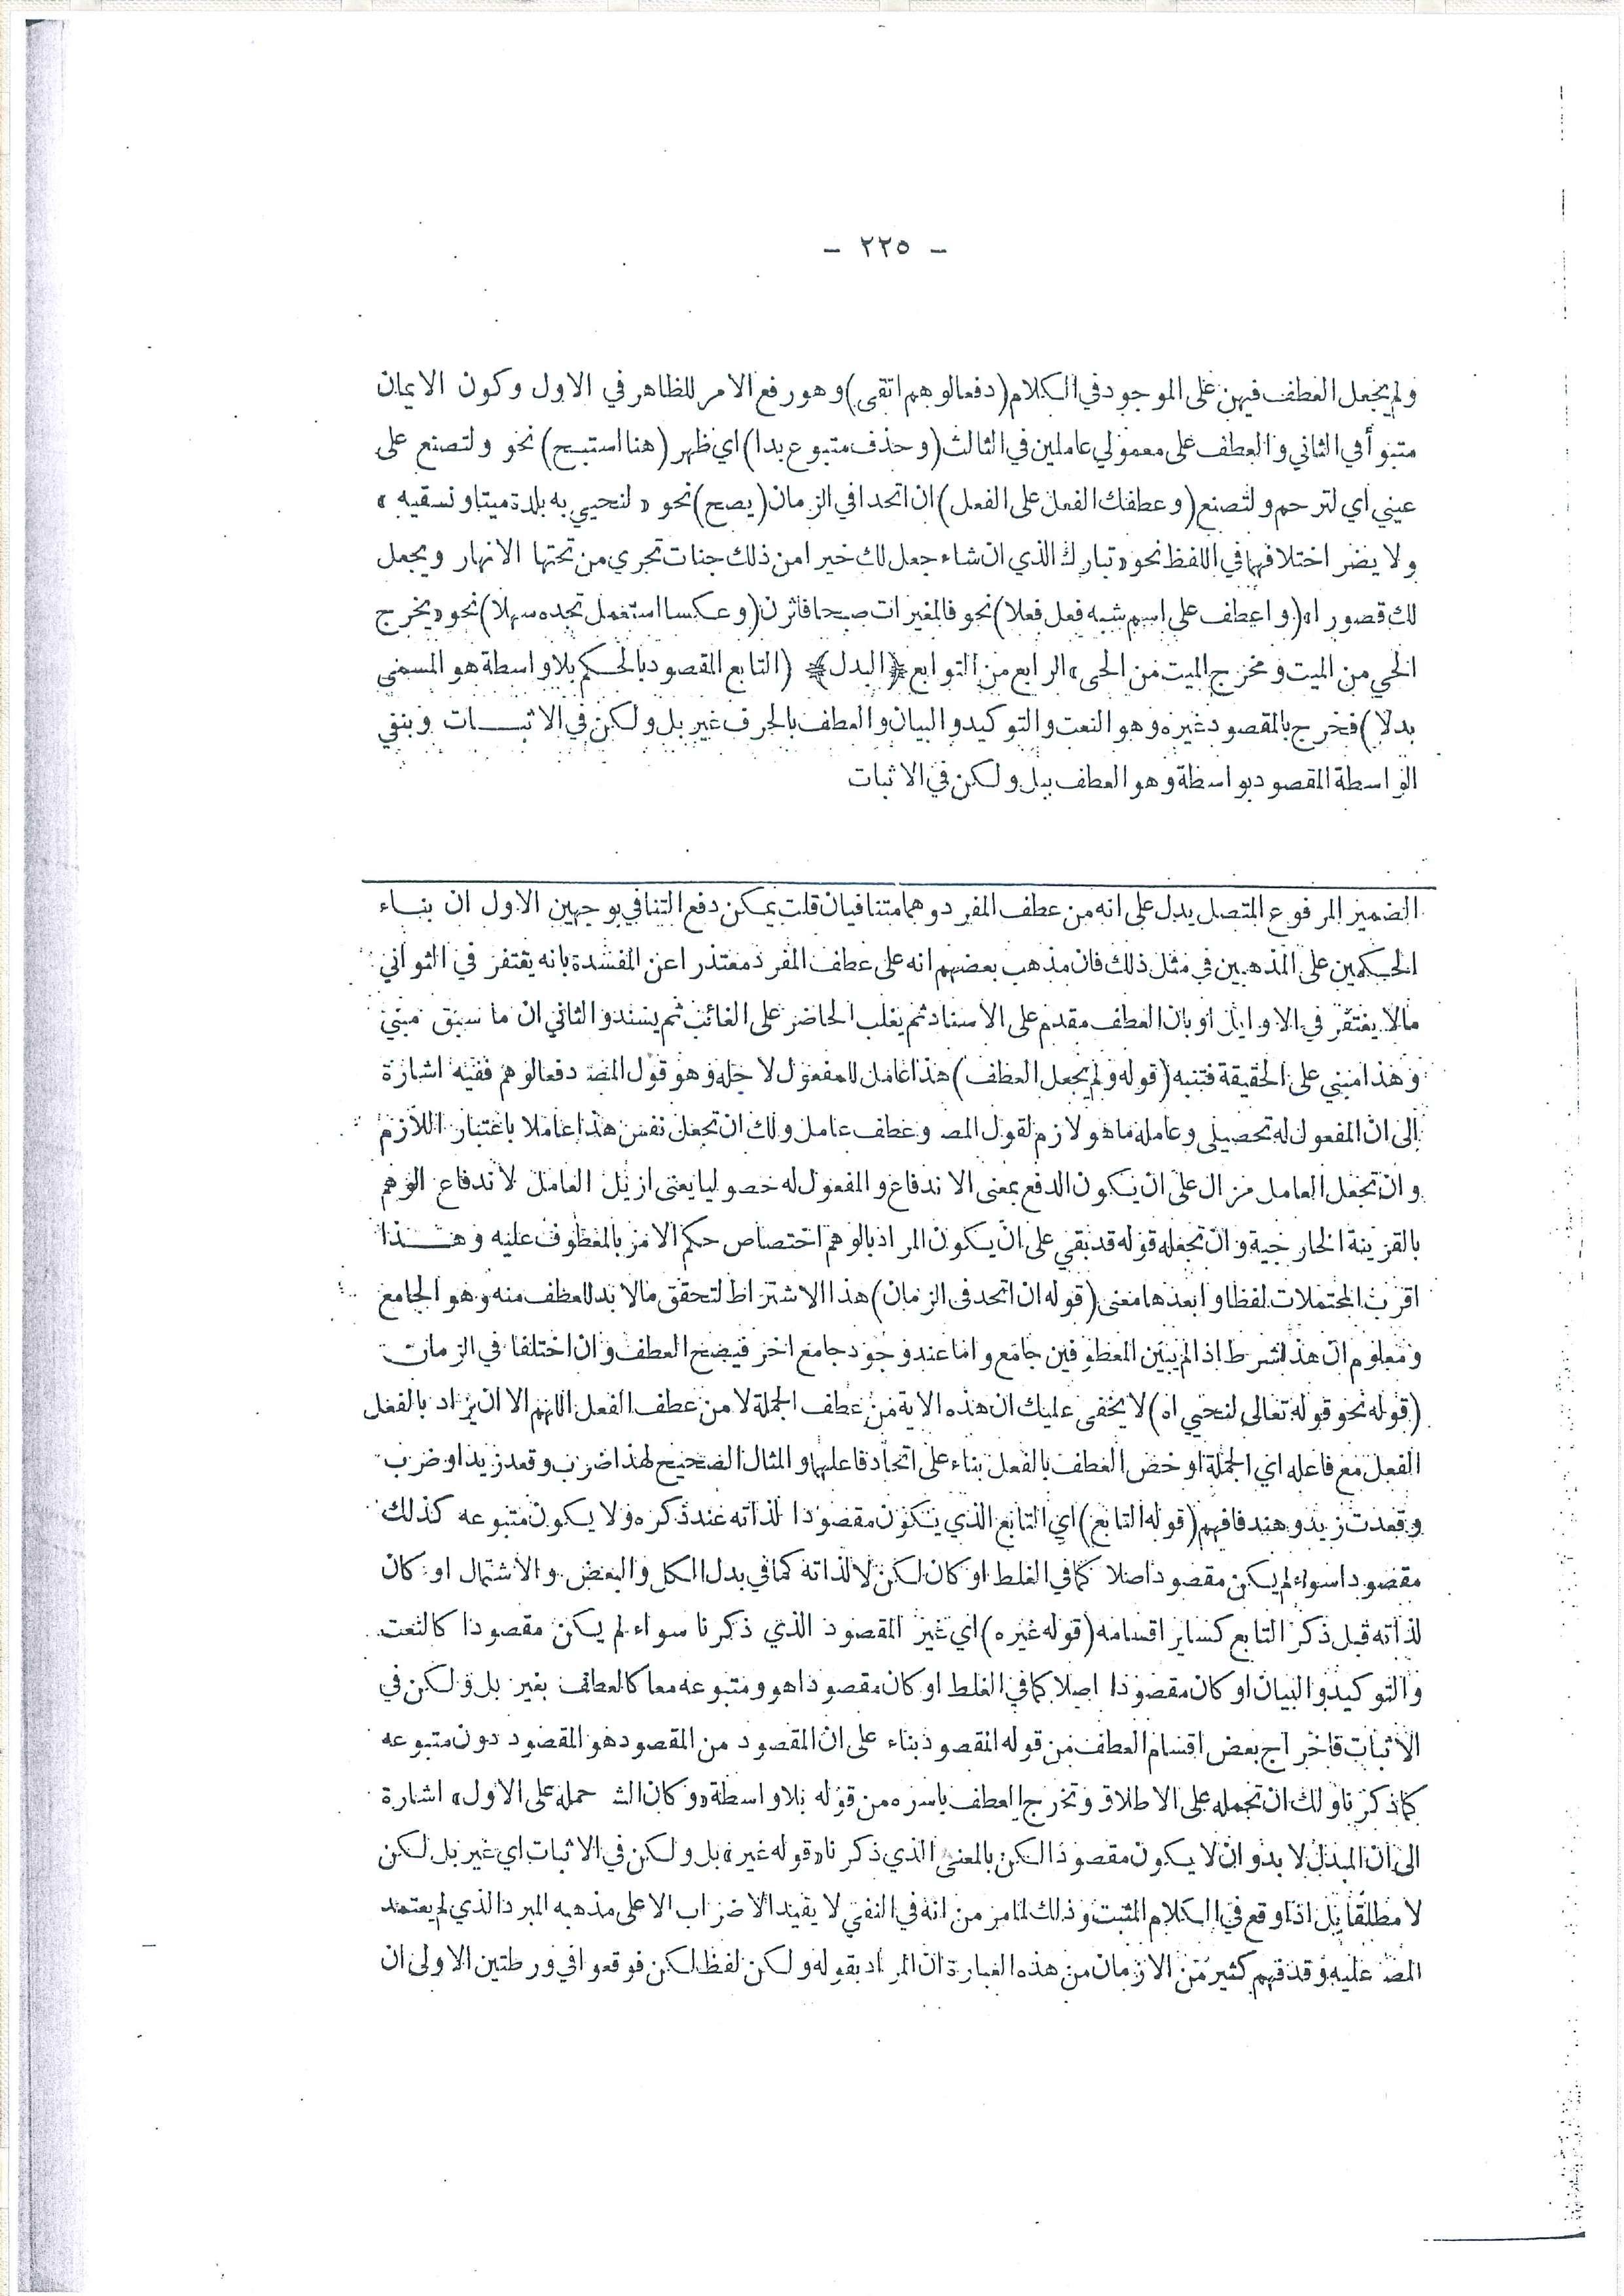 - ٢٢٥ -
ولم يجعل العطف فيهن على الموجود في الكلام (دفعا لوهم اتقى) وهو رفع الامر للظاهر في الاول وكون الايمان
متبوأ في الثاني والعطف على معمولي عاملين في الثالث (وحذف متبوع بدا) اي ظهر (هنا استبح) نحو ولتصنع على
عيني أي لترحم ولتصنع (وعطفك الفعل على الفعل) ان اتحدا في الزمان (يصح) نحو « لنحيي به بلدة ميتا ونسقيه »
ولا يضر اختلافهما في اللفظ نحو « تبارك الذي ان شاء جعل لك خيرا من ذلك جنات تجري من تحتها الانهار ويجعل
لك قصورا » (واعطف على اسم شبه فعل فعلا) نحو فالمغيرات صبحا فأثرن (وعكسا استعمل تجده سهلا) نحو « يخرج
الحي من الميت ومخرج الميت من الحي » الرابع من التوابع ﴿ البدل ﴾ (التابع المقصود بالحكم بلا واسطة هو المسمى
بدلا) فخرج بالمقصود غيره وهو النعت والتوكيد والبيان والعطف بالحرف غير بل ولكن في الاثبـــات وبنفي
الواسطة المقصود بواسطة وهو العطف ببل ولكن في الاثبات
الضمير المرفوع المتصل يدل على انه من عطف المفرد وهما متنافيان قلت يمكن دفع التنافي بوجهين الاول ان بنـاء
الحكمين على المذهبين في مثل ذلك فان مذهب بعضهم انه على عطف المفرد معتذرا عن المفسدة بانه يغتفر في الثواني
مالا يغتفر في الاوايل او بان العطف مقدم على الاسناد ثم يغلب الحاضر على الغائب ثم يسند والثاني ان ما سبق مبني
وهذا مبني على الحقيقة فتنبه (قوله ولم يجعل العطف) هذا عامل للمفعول لاجله وهو قول المصـ دفعا لوهم ففيه اشارة
الى ان المفعول له تحصيلي وعامله ما هو لازم لقول المصـ وعطف عامل ولك ان تجعل نفس هذا عاملا باعتبار اللازم
وان تجعل العامل مزال على ان يكون الدفع بمعنى الاندفاع والمفعول له حصوليا يعنى ازيل العامل لاندفاع الوهم
بالقرينة الخارجية وان تجعله قوله قد بقي على ان يكون المراد بالوهم اختصاص حكم الامر بالمعطوف عليه وهـــذا
اقرب المحتملات لفظا وابعدها معنى (قوله ان اتحد في الزمان) هذا الاشتراط لتحقق مالا بد للعطف منه وهو الجامع
ومعلوم ان هذا شرط اذا لم يبين المعطوفين جامع واما عند وجود جامع اخر فيصح العطف وان اختلفا في الزمان
(قوله نحو قوله تعالى لنحيي اه) لا يخفى عليك ان هذه الاية من عطف الجملة لا من عطف الفعل اللهم الا ان يراد بالفعل
الفعل مع فاعله اي الجملة او خص العطف بالفعل بناء على اتحاد فاعليهما والمثال الصحيح لهذا ضرب وقعد زيد او ضرب
وقعدت زيد وهند فافهم (قوله التابع) اي التابع الذي يتكون مقصودا لذاته عند ذكره ولا يكون متبوعه كذلك
مقصودا سواء لم يكن مقصودا اصلا كما في الغلط او كان لكن لا لذاته كما في بدل الكل والبعض والاشتمال او كان
لذاته قبل ذكر التابع كساير اقسامه (قوله غيره) اي غير المقصود الذي ذكرنا سواء لم يكن مقصودا كالنعت
والتوكيد والبيان او كان مقصودا اصلا كما في الغلط او كان مقصودا هو ومتبوعه معا كالعطف بغير بل ولكن في
الاثبات فاخراج بعض اقسام العطف من قوله المقصود بناء على ان المقصود من المقصود هو المقصود دون متبوعه
كما ذكرنا ولك ان تحمله على الاطلاق وتخرج العطف باسره من قوله بلا واسطة « وكان الشـ حمله على الاول » اشارة
الى ان المبدل لا بد وان لا يكون مقصودا لكن بالمعنى الذي ذكرنا « قوله غير » بل ولكن في الاثبات اي غير بل لكن
لا مطلقا بل اذا وقع في الكلام المثبت وذلك لما مر من انه في النفي لا يفيد الاضراب الا على مذهبه المبرد الذي لم يعتمد
المصـ عليه وقد فهم كثير من الازمان من هذه العبارة ان المراد بقوله ولكن لفظ لكن فوقعوا في ورطتين الاولى ان